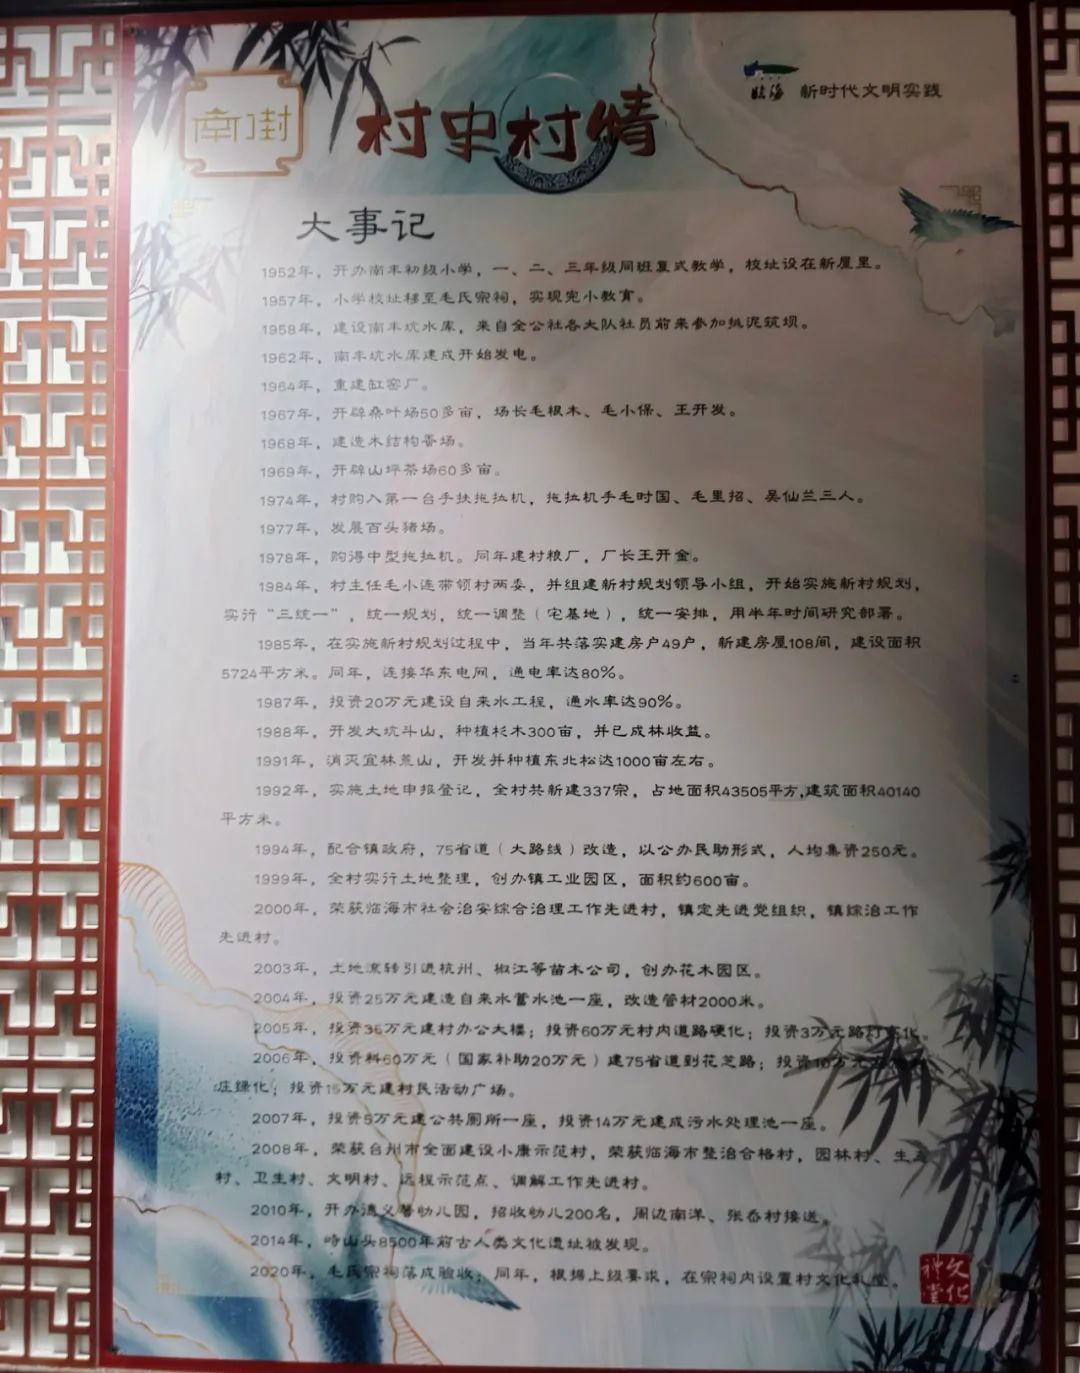 南封
村史村情
临海 新时代文明实践
大事记
1952年，开办南丰初级小学，一、二、三年级同班复式教学，校址设在新屋里。
1957年，小学校址移至毛氏宗祠，实现完小教育。
1958年，建设南丰坑水库，来自全公社各大队社员前来参加挑泥筑坝。
1962年，南丰坑水库建成开始发电。
1964年，重建缸窑厂。
1967年，开辟桑叶场50多亩，场长毛根木、毛小保、王开发。
1968年，建造木结构香场。
1969年，开辟山坪茶场60多亩。
1974年，村购入第一台手扶拖拉机，拖拉机手毛时国、毛里招、吴仙兰三人。
1977年，发展百头猪场。
1978年，购得中型拖拉机。同年建村粮厂，厂长王开金。
1984年，村主任毛小连带领村两委，并组建新村规划领导小组，开始实施新村规划，
实行“三统一”，统一规划，统一调整（宅基地），统一安排，用半年时间研究部署。
1985年，在实施新村规划过程中，当年共落实建房户49户，新建房屋108间，建设面积
5724平方米。同年，连接华东电网，通电率达80%。
1987年，投资20万元建设自来水工程，通水率达90%。
1988年，开发大坑斗山，种植杉木300亩，并已成林收益。
1991年，消灭宜林荒山，开发并种植东北松达1000亩左右。
1992年，实施土地申报登记，全村共新建337宗，占地面积43505平方，建筑面积40140
平方米。
1994年，配合镇政府，75省道（大路线）改造，以公办民助形式，人均集资250元。
1999年，全村实行土地整理，创办镇工业园区，面积约600亩。
2000年，荣获临海市社会治安综合治理工作先进村，镇定先进党组织，镇综治工作
先进村。
2003年，土地流转引进杭州、椒江等苗木公司，创办花木园区。
2004年，投资25万元建造自来水蓄水池一座，改造管材2000米。
2005年，投资36万元建村办公大楼；投资60万元村内道路硬化；投资3万元路灯亮化。
2006年，投资料60万元（国家补助20万元）建75省道到花芝路；投资10万元
庄绿化；投资15万元建村民活动广场。
2007年，投资5万元建公共厕所一座，投资14万元建成污水处理池一座。
2008年，荣获台州市全面建设小康示范村，荣获临海市整治合格村，园林村、生态
村、卫生村、文明村、远程示范点、调解工作先进村。
2010年，开办遵义馨幼儿园，招收幼儿200名，周边南洋、张岙村接送。
2014年，峙山头8500年前古人类文化遗址被发现。
2020年，毛氏宗祠落成验收；同年，根据上级要求，在宗祠内设置村文化礼堂。
文化